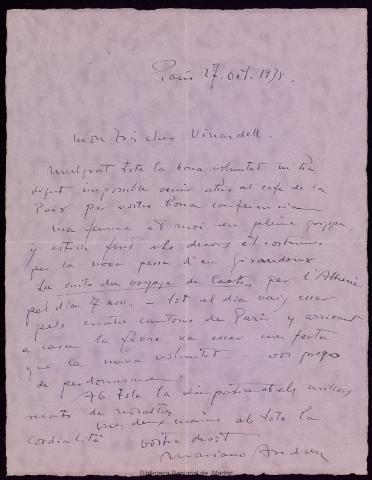 Paris 27. Oct. 1935.
Mon très cher Viñardell.
Malgrat tota la bona voluntat m'ha
sigut impossible venir ahir al cafe de la
Paix per vostra bona conferencia
Ma femme et moi en pleine grippe
y estich fent els decors et costumes
per la nova pessa d'en Giraudoux
La suite du voyage de Cook per l'Athenée
pel dia 7 nov. - tot el dia vaig esser
pels cuatre cantons de Paris y arrivant
a casa la fèvre va esser mes forta
que la meva voluntat - vos prego
de perdonarme
Ab tota la simpatia ab els millors
recorts de nosaltres
mes deux mains ab tota la
cordialité vostre devot
Mariano Andreu
Biblioteca Regional de Madrid